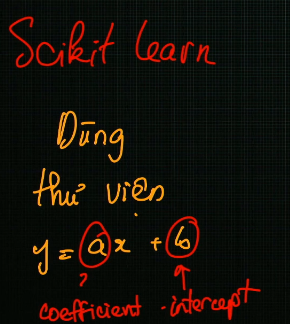 Scikit learn
Dùng
thư viện
y = ax + b
coefficient - intercept